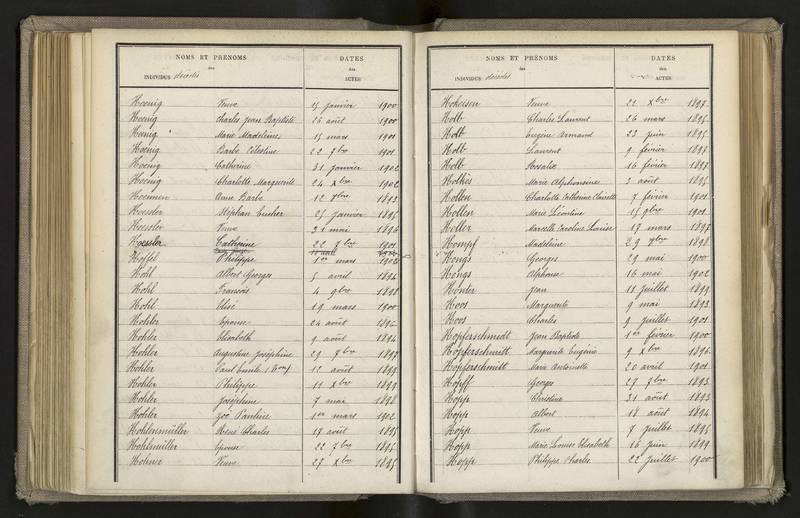 NOMS ET PRÉNOMS
des
INDIVIDUS décédés
DATES
des
ACTES
Hoenig Veuve 15 janvier 1900
Hoenig Charles Jean Baptiste 26 août 1900
Hoenig Marie Madeleine 15 mars 1901
Hoenig Barbe Célestine 22 7bre 1901
Hoenig Catherine 31 janvier 1902
Hoenig Charlotte Marguerite 24 Xbre 1902
Anne Barbe 12 1893
Hoessler Stéphan 25 janvier 1895
Hoessler Veuve 21 mai 1896
Hoessler Catherine 22 7bre 1901
Hoffel Philippe 1er mars 1902
Hohl Albert Georges 5 avril 1894
Hohl François 4 9bre 1898
Hohl Elise 19 mars 1900
Hohler Epouse 24 août 1896
Hohler Elisabeth 9 août 1894
Hohler Augustine Joséphine 29 7bre 1897
Hohler Paul Emile 12 août 1899
Hohler Philippe 11 Xbre 1899
Hohler Joséphine 7 mai 1898
Hohler Zoé Pauline 1er mars 1902
Hohlenmüller René Charles 17 août 1895
Hohlmüller Epouse 22 7bre 1895
Hohner Veuve 27 Xbre 1895
NOMS ET PRÉNOMS
des
INDIVIDUS décédés
DATES
des
ACTES
Hoheisen Veuve 21 Xbre 1897
Holb Charles Laurent 26 mars 1895
Holb Eugène Armand 23 juin 1895
Holb Laurent 9 février 1897
Holb Rosalie 16 février 1897
Marie Alphonsine 3 août 1895
Hollen Charlotte Catherine 7 février 1901
Hollen Marie Léontine 15 9bre 1901
Holler Marcelle Caroline Louise 17 mars 1897
Hompf Madeleine 29 9bre 1898
Hongs Georges 29 mai 1900
Hongs Alphonse 16 mai 1902
Honter Jean 11 juillet 1899
Hoos Marguerite 9 mai 1893
Hoos Charles 9 juillet 1901
Hopferschmidt Jean Baptiste 1er février 1900
Hopferschmitt Marguerite Eugénie 9 Xbre 1896
Hopferschmitt Marie Antoinette 20 avril 1901
Hopff Georges 27 7bre 1893
Hopp Christine 31 août 1893
Hopp Albert 18 août 1894
Hopp Veuve 7 juillet 1895
Hopp Marie Louise Elisabeth 16 juin 1899
Hopp Philippe Charles 22 juillet 1900